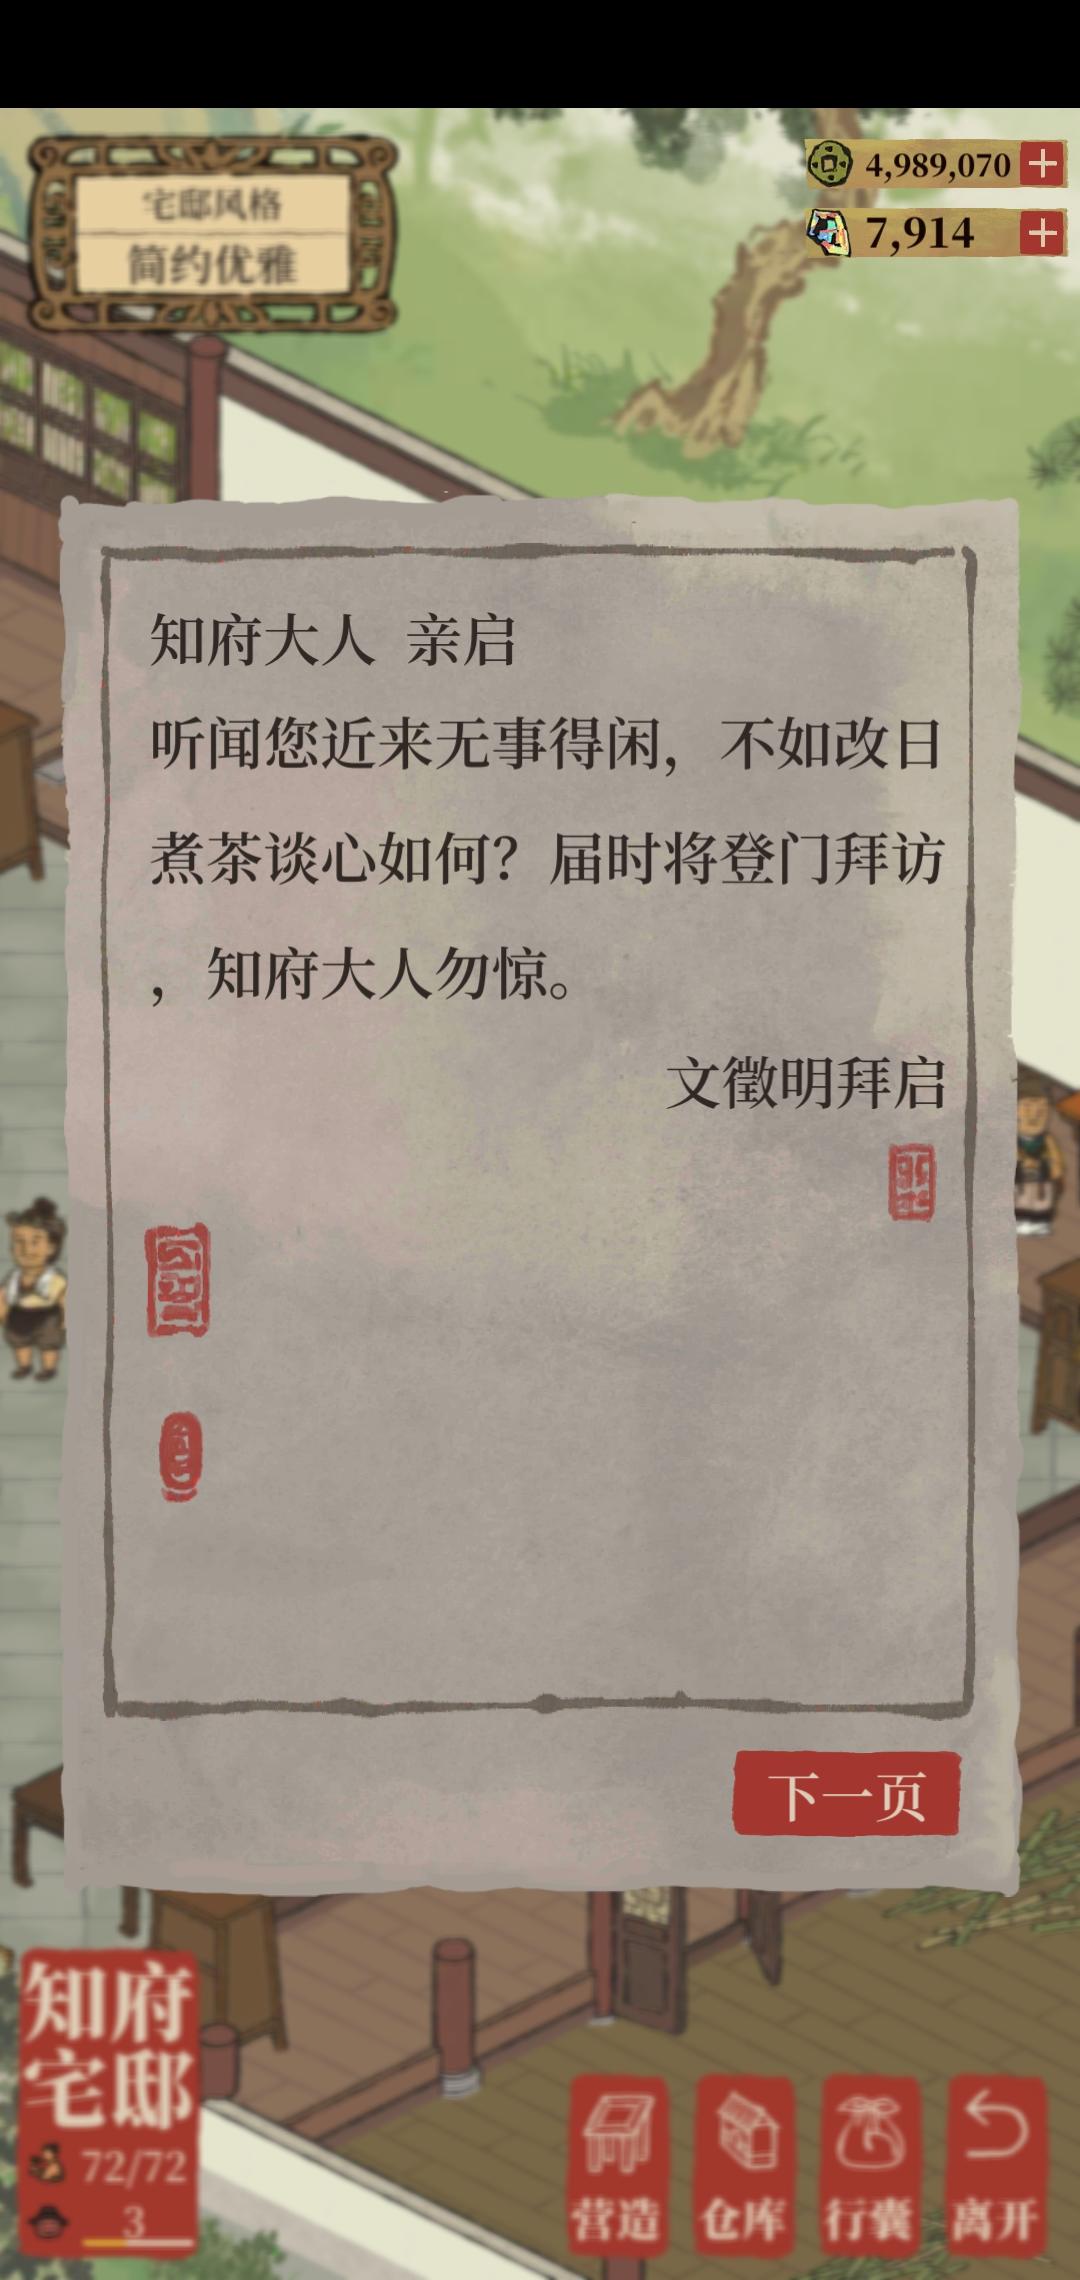 宅邸风格
简约优雅
4,989,070
7,914
知府大人 亲启
听闻您近来无事得闲，不如改日
煮茶谈心如何？届时将登门拜访
，知府大人勿惊。
文徵明拜启
下一页
知府
宅邸
72/72
3
营造
仓库
行囊
离开